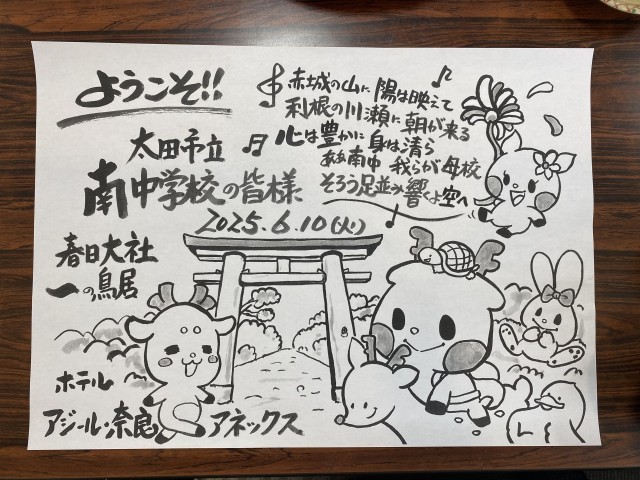 ようこそ!!
赤城の山に 陽は映えて
利根の川瀬に 朝が来る
心は豊かに 身は清ら
ああ南中 我らが母校
そろう足並み 響くよ空へ
太田市立
南中学校の皆様
2025.6.10(火)
春日大社
一の鳥居
ホテル
アジール・奈良 アネックス